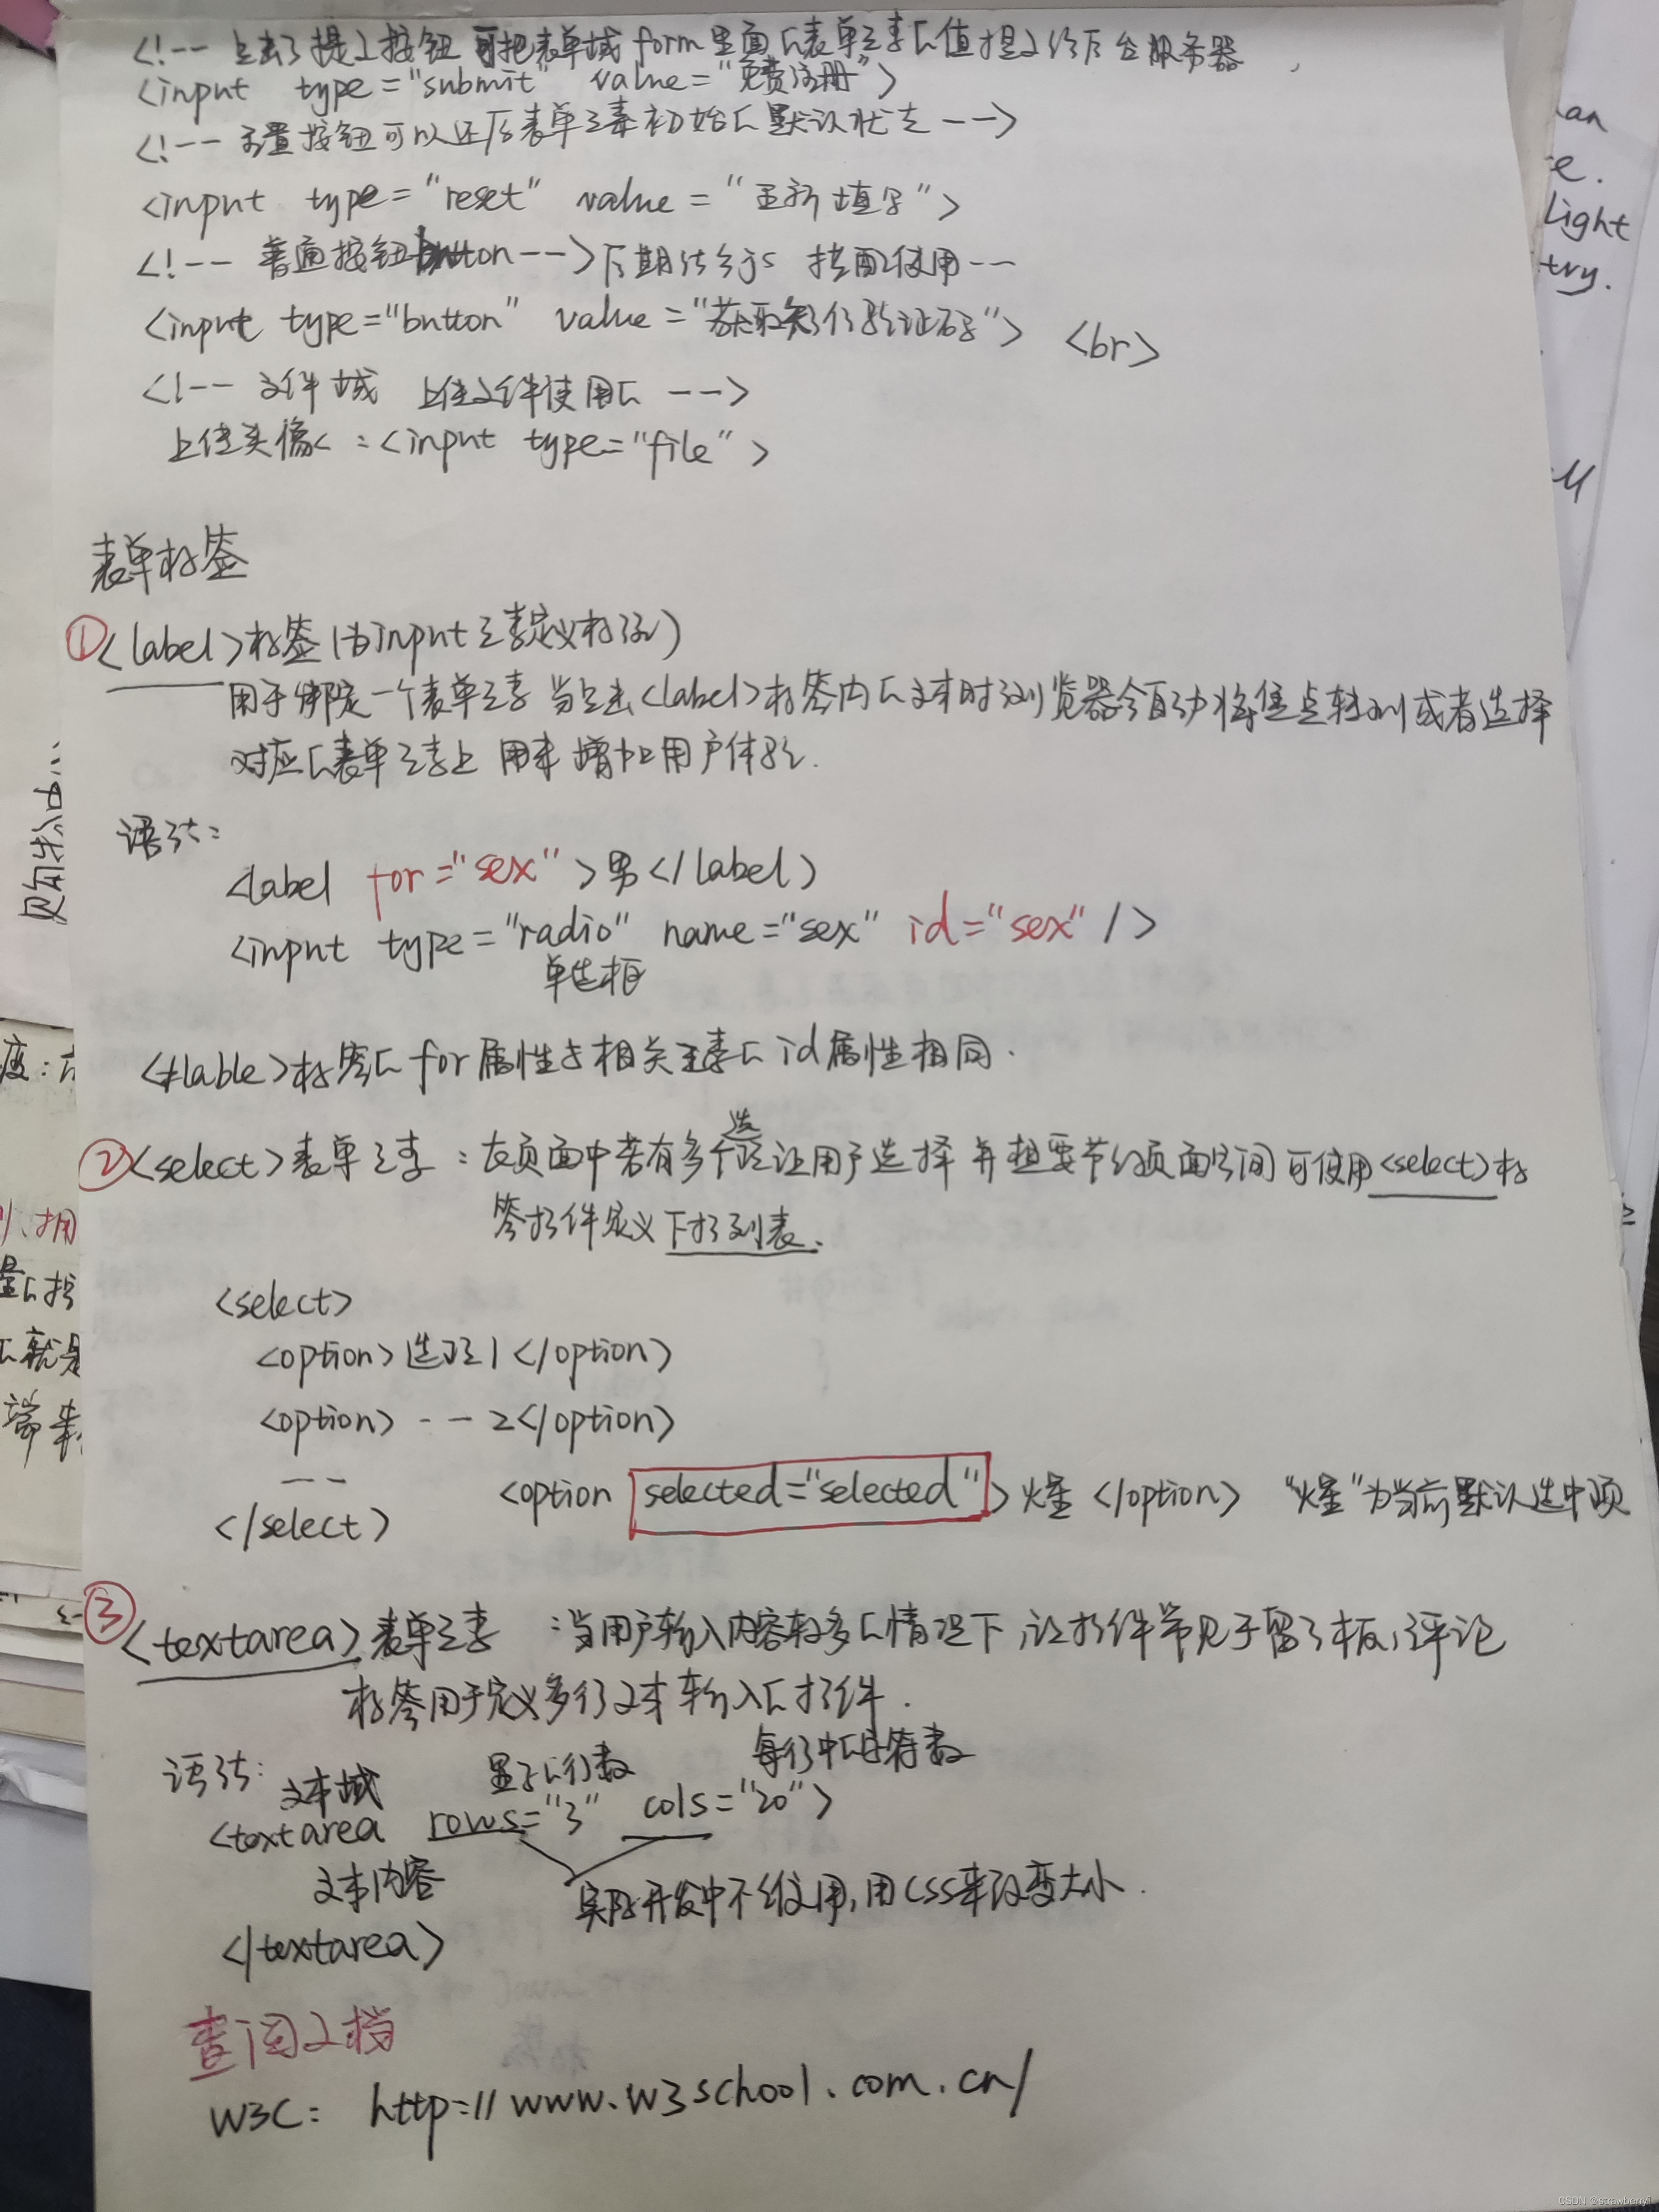 <!-- 点击了提交按钮 可把表单域 form 里面的表单元素的值提交给后台服务器
<input type="submit" value="免费注册">
<!-- 重置按钮可以还原表单元素初始的默认状态 -->
<input type="reset" value="重新填写">
<!-- 普通按钮button --> 后期结合js 搭配使用--
<input type="button" value="获取短信验证码"> <br>
<!-- 文件域 上传文件使用的 -->
上传头像< :<input type="file">
表单标签
①<label>标签(为input元素定义标注)
用于绑定一个表单元素 当点击<label>标签内的文本时浏览器会自动将焦点转到或者选择
对应的表单元素上 用来增加用户体验.
语法:
<label for="sex">男</label>
<input type="radio" name="sex" id="sex" />
单选框
<lable>标签的for属性与相关元素的id属性相同.
②<select>表单元素:在页面中若有多个选项让用户选择 并想要节约页面空间 可使用<select>标
签控件定义下拉列表.
<select>
<option>选项1</option>
<option> -- 2</option>
--
</select>
<option selected="selected">火星</option> "火星"为当前默认选中项
③<textarea>表单元素 :当用户输入内容较多的情况下,让控件常见于留言板,评论
标签用于定义多行文本输入的控件.
语法: 文本域 显示的行数 每行中的字符数
<textarea rows="3" cols="20">
文本内容
实际开发中不会使用,用CSS来改变大小.
</textarea>
查阅文档
W3C: http://www.w3school.com.cn/
an
e.
light
try.
度:
就是
端
CSDN @strawberry